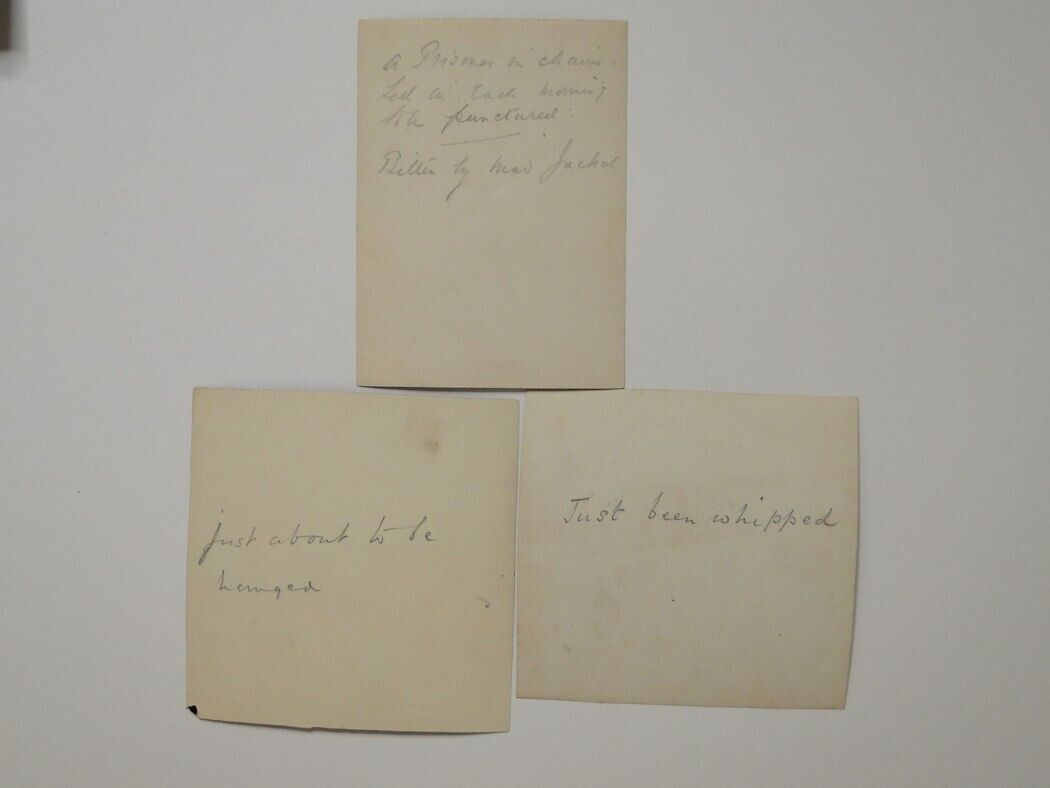 A Prisoner in chains.
Led in Each morning
to be punctured:
Bitten by mad Jackal
Just about to be
hanged
Just been whipped